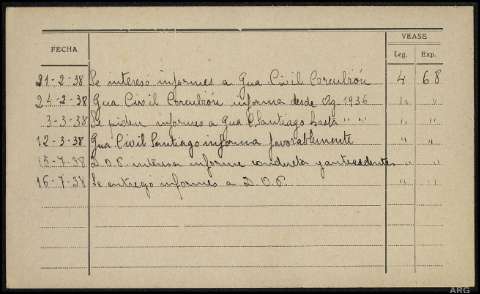 VEASE
FECHA Leg. Exp.
21-2-38 Se interesó informes a Gua Civil Corcubión 4 68
24-2-38 Gua Civil Corcubión informa desde Ag-1936 " "
3-3-38 Se piden informes a Gua C. Santiago hasta " " " "
12-3-38 Gua Civil Santiago informa favorablemente " "
15-7-38 D.O.P. interesa informe conducta y antecedentes " "
16-7-38 Se entregó informes a D.O.P. " "
ARG